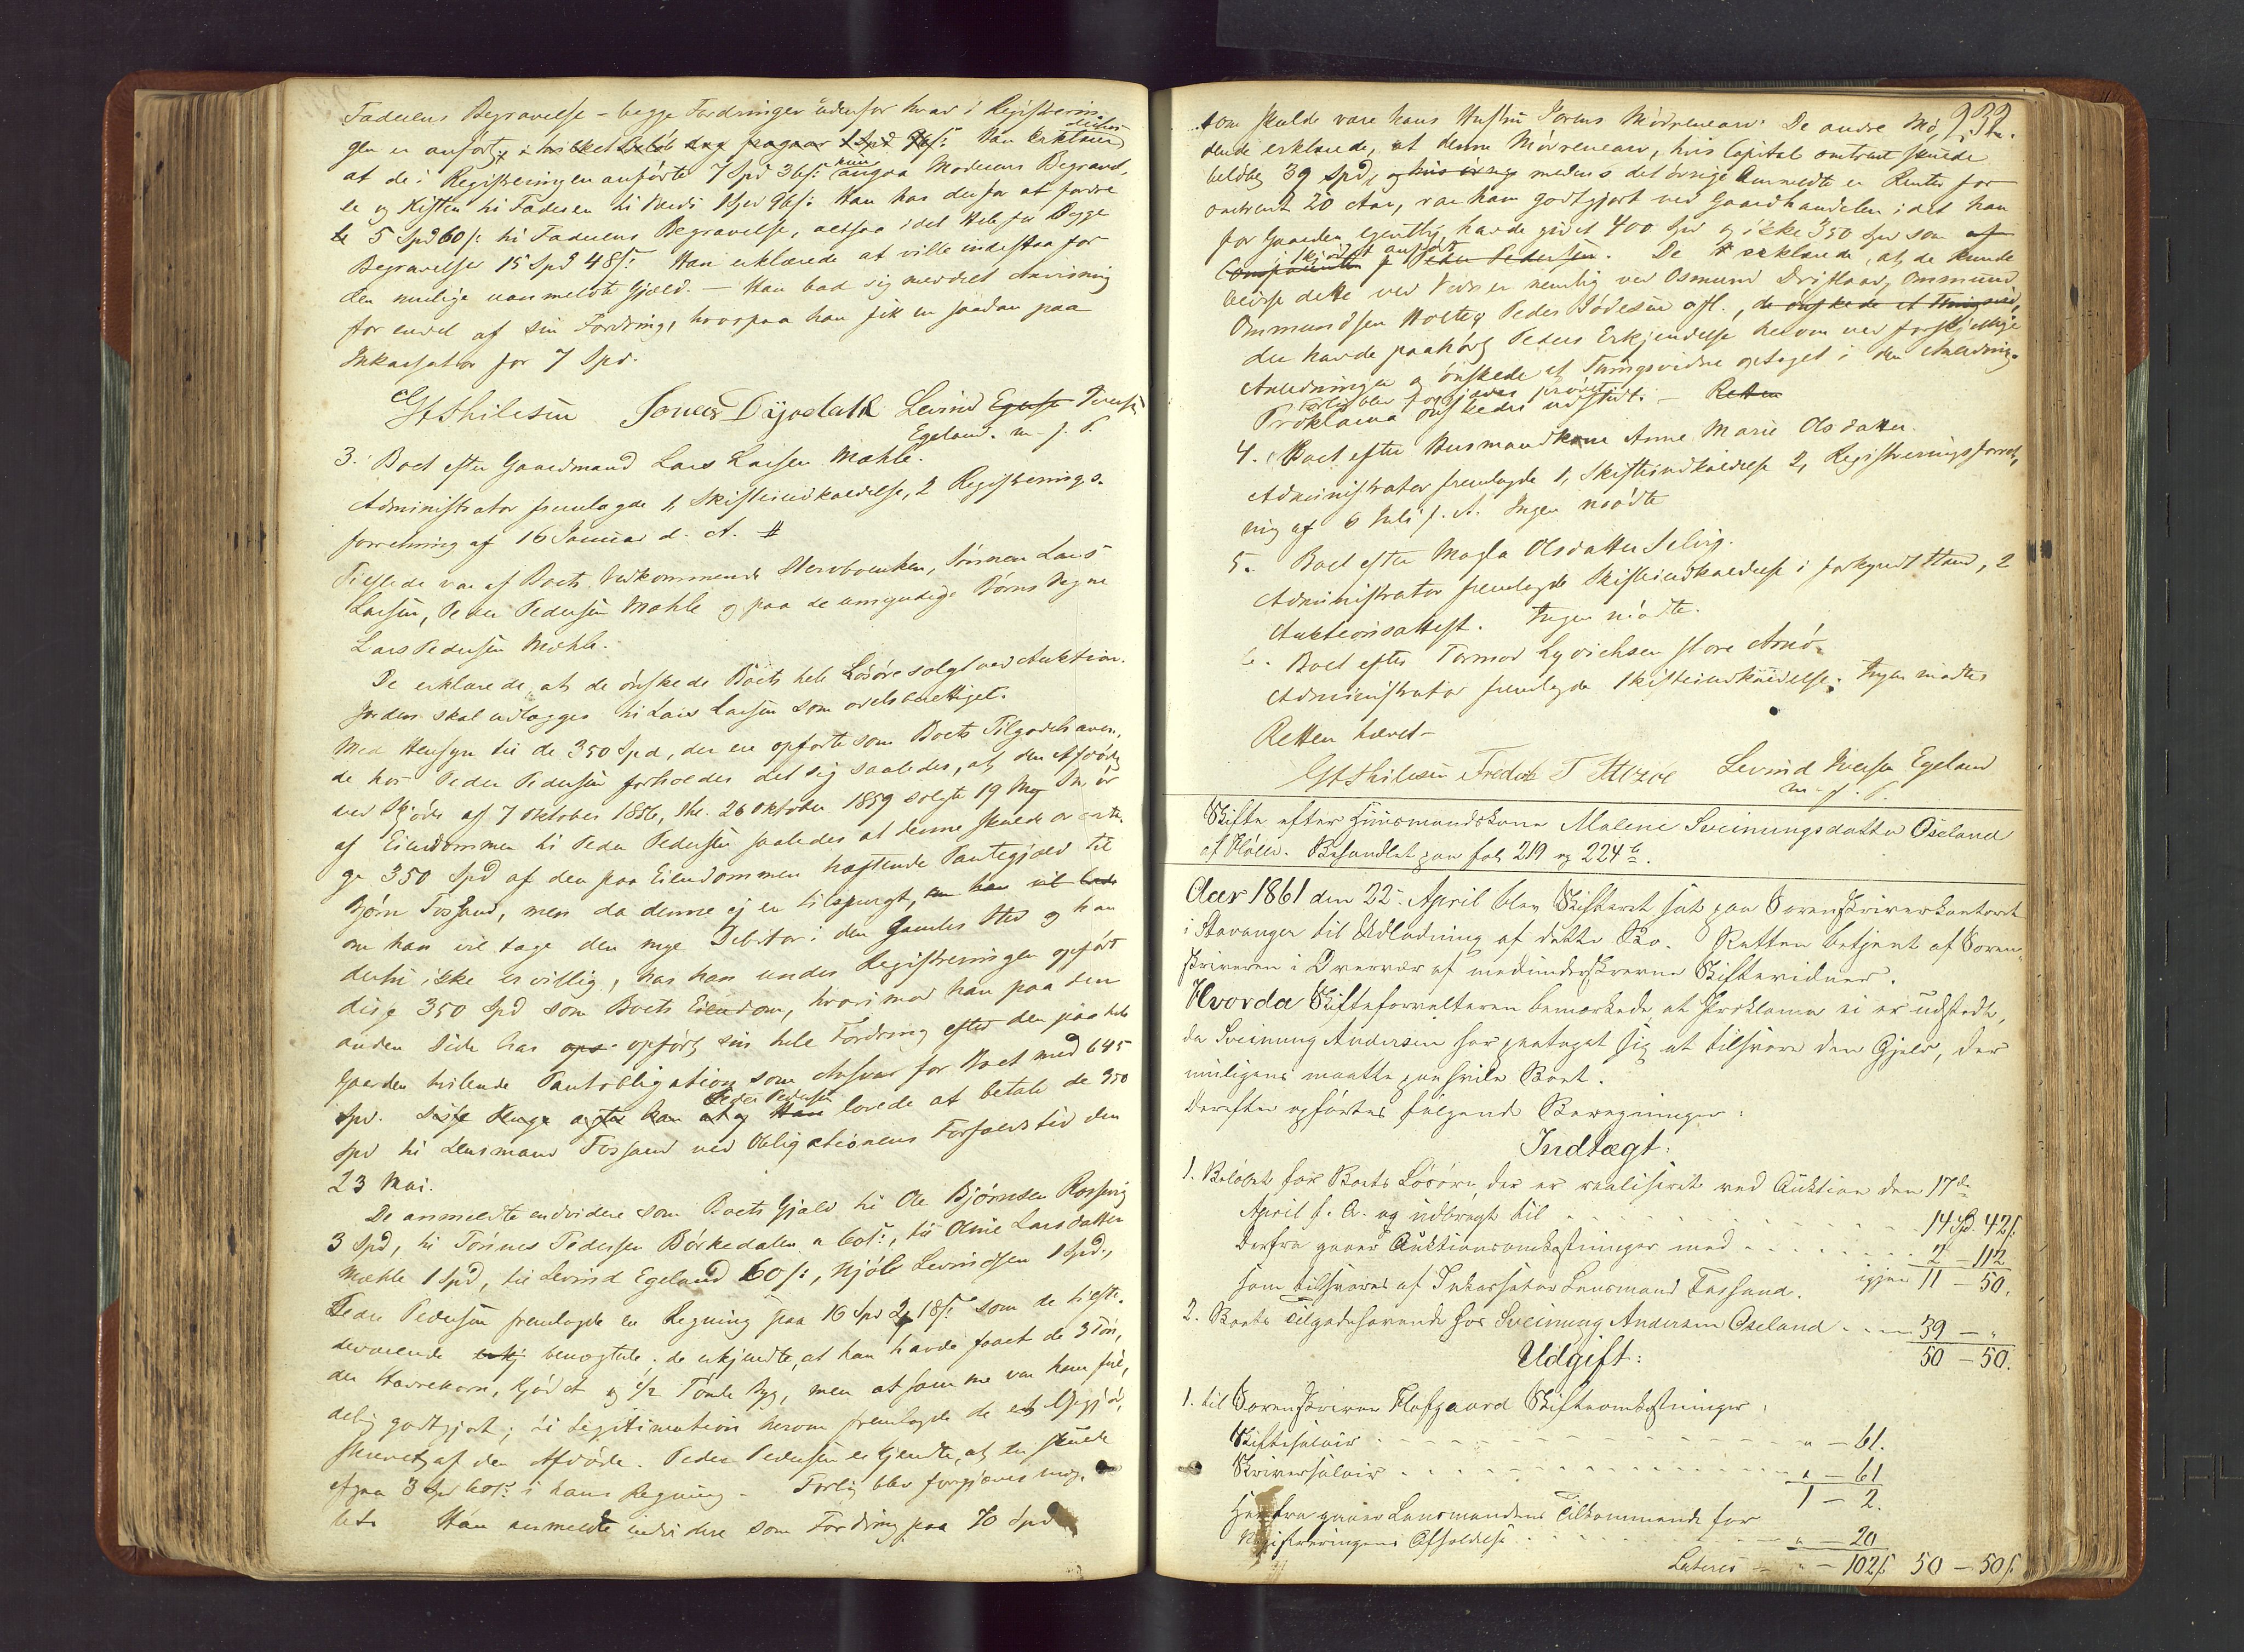 Faderens Begravelse – begge Fordringer udenfor hvad i Registrerin-
gen er anført, i hvilket Beløb dog fragaar 1 Spd 96 s: Han erklærede
at de i Registreringen anførte 7 Spd 36 s: kun angaa Moderens Begravel-
se og Kisten til Faderen til Værdi 1 Spd 96 s: Han har derfor at fordre
5 Spd 60 s: til Faderens Begravelse, altsaa i det Hele for Begge
Begravelser 15 Spd 48 s: Han erklærede at ville indestaa for
den mulige uanmeldte Gjæld. – Han bad sig meddelt Anvisning
for endel af sin Fordring, hvorpaa han fik en saadan paa
Inkassator for 7 Spd.
Jonas Dÿsdahl Levind Egela Iversen
Egeland. m. f. P.
3. Boet efter Gaardmand Lars Larsen Mæhle.
Administrator fremlagde 1, Skifteindkaldelse, 2 Registrerings-
forretning af 16 Januar d. A. #
Tilstede var af Boets Vedkommende Stervboenken, Sønnen Lars
Larsen, Peder Pedersen Mæhle og paa de umyndige Børns Vegne
Lars Pedersen Mæhle.
De erklærede, at de ønskede Boets hele Løsøre solgt ved Auktion.
Jorden skal udlægges til Lars Larsen som odelsberettiget.
Med Hensyn til de 350 Spd, der ere opførte som Boets Tilgodehaven-
de hos Peder Pedersen forholder det sig saaledes, at den Afdøde
ved Skjøde af 7 Oktober 1856, thl. 26 Oktober 1859 solgte 19 Mg Sm ør
af Eiendommen til Peder Pedersen saaledes at denne skulde overta-
ge 350 Spd af den paa Eiendommen hæftende Pantegjæld til
Bjørn Fossand, men da denne ej er tilspurgt, om han vil
om han vil tage den nye Debitor i den Gamles Sted og han
dertil ikke er villig, har han under Registreringen opført
disse 350 Spd som Boets Eiendom, hvorimod han paa den
anden Side har opført sin hele Fordring efter den paa hele
Gaarden hvilende Pantobligation som Ansvar for Boet med 645
Spd. Peder Pedersen lovede at betale de 350
Spd til Lensmand Fossand ved Obligationens Forfaldstid den
23 Mai.
De anmeldte endvidere som Boets Gjæld til Ole Bjørnsen Rossavig
3 Spd, til Tønnes Pedersen Børkedalen " 60 s:, til Anne Larsdatter
Mæhle 1 Spd, til Levind Egeland 60 s:, Njøll Levindsen 1 Spd.,
Peder Pedersen fremlagde en Regning paa 16 Spd 2 18 s: som de tilste-
deværende benægtede; de erkjendte, at han havde faaet de 3 Tøn-
der Havrekorn, Kjødet og 1/2 Tønde Byg, men at samme var ham fuld-
delig godtgjort; til Legitimation herom fremlagde de et Opgjør,
skrevet af den Afdøde. Peder Pedersen erkjendte, at der skulde
afgaa 3 Spd 60 s: i hans Regning – Forlig blev forgjæves møg-
let. Han anmeldte endvidere som Fordring paa 70 Spd
232.
som skulde være hans Hustru Jorens Mødrenearv. De andre Mø-
dende erklærede, at denne Mødrenearv, hvis Capital omtrent skulde
beløbe 39 Spd, medens det øvrige Anmeldte er Renter for
omtrent 20 Aar, var ham godtgjort ved Gaardhandelen idet han
for Gaarden egentlig havde givet 400 Spd og ikke 350 Spd som
i Skjødet anført. De erklærede, at de kunde
bevise dette ved Vidner nemlig ved Osmund Dristland, Ommund
Ommundsen Holte, Peder Bødesen ofl., de ønskede et Thingsvid-
der havde paahørt Peders Erkjendelse herom ved forskjellige
Anledninger og ønskede et Thingsvidne optaget i den Anledning.
Forlig blev forgjæves prøvet
Proklama ønskedes udstedt. – Retten
4. Boet efter Husmandkone Anne Marie Olsdatter.
Administrator fremlagde 1, Skifteindkaldelse 2, Registreringsforret-
ning af 6 Juli f. A. Ingen mødte
5. Boet efter Magla Olsdatter Selvig.
Administrator fremlagde Skifteindkaldelse i forkyndt Stand, 2
Auktionsattest. Ingen mødte.
6. Boet efter Tormod Sjovichsen Store Amø.
Administrator fremlagde Skifteindkaldelse. Ingen mødte
Retten hævet –
Levind Iversen Egeland
m. f. P.
Skifte efter Huusmandskone Malene Sveinungsdatter Oseland
af Hölle. Behandlet paa fol 219 og 224 b.
Aar 1861 den 22. April blev Skifteret sat paa Sorenskriverkontoret
i Stavanger til Udlodning af dette Bo. Retten betjent af Soren-
skriveren i Overvær af medunderskrevne Skiftevidner.
Hvorda Skifteforvalteren bemærkede, at Proklama ei er udstedt,
da Sveinung Andersen har paataget sig at tilsvare den Gjeld, der
muligens maatte paahvile Boet.
Derefter opførtes følgende Beregninger:
Indtægt:
1. Beløbet for Boets Løsøre, der er realiseret ved Auktion den 17de
April f. A. og udbragt til 14 Spd 42 s.
Derfra gaaer Auktionsomkostninger med 2 – 112
som tilsvares af Inkassator Lensmand Fossand. igjen 11 – 50.
2. Boets Tilgodehavende hos Sveinung Andersen Oseland 39 – "
50 – 50.
Udgift:
1. til Sorenskriver Flofgaard Skifteomkostninger:
Skiftesalair " – 61.
Skriversalair " – 61
1 – 2.
Herfra gaaer Lensmandens Tilkommende for
Registreringens Afholdelse " – 20
Lateris " – 102 s. 50 – 50 s.